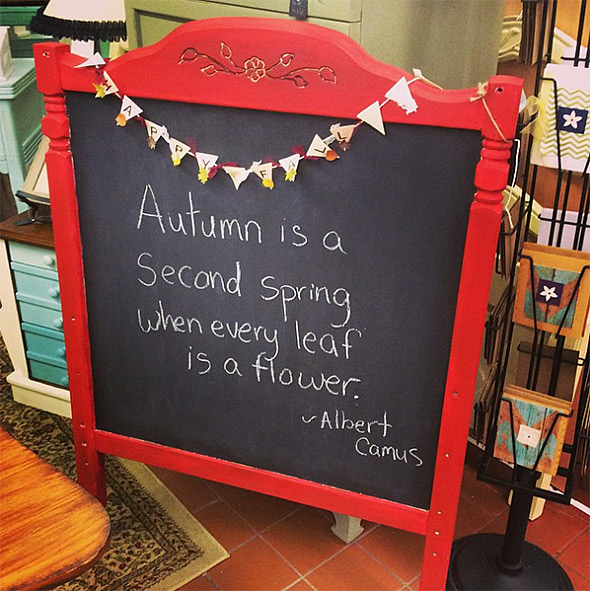 HAPPY FALL
Autumn is a
Second Spring
when every leaf
is a flower.
~Albert
Camus